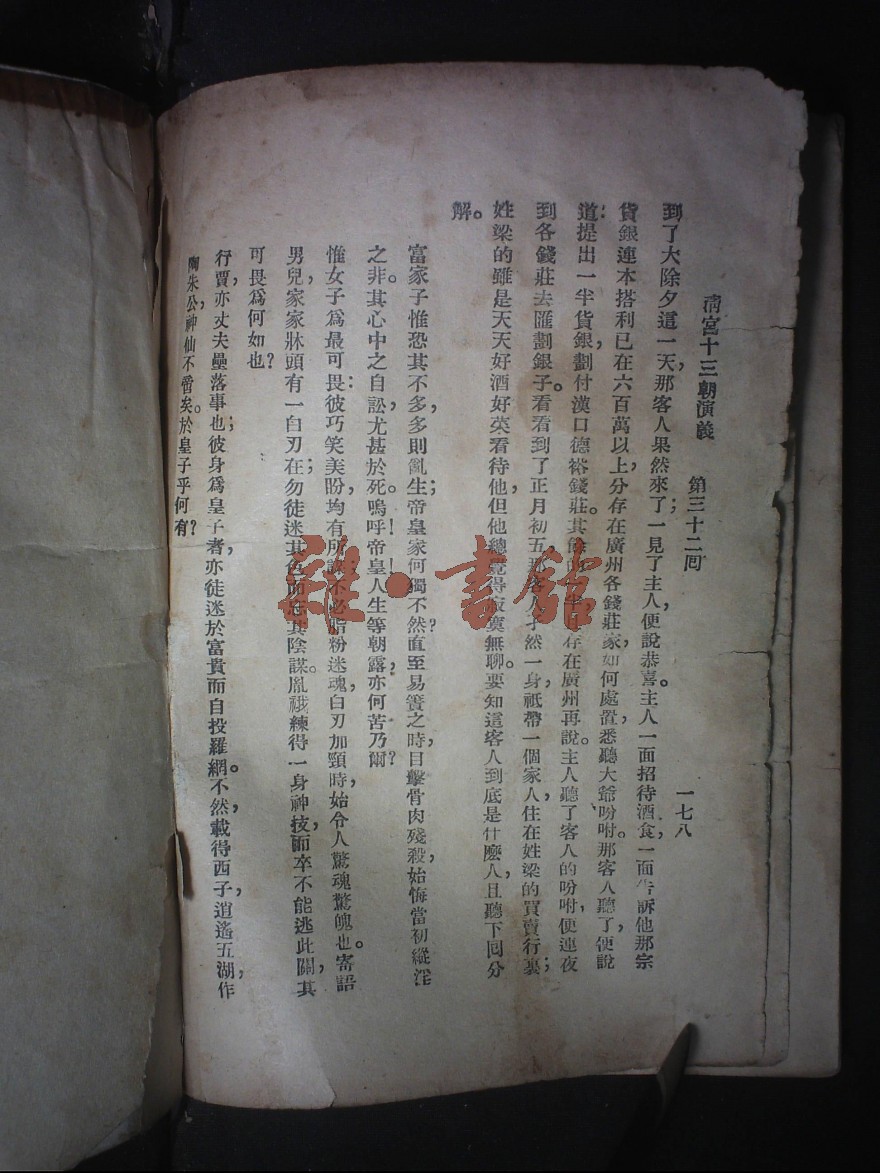 清宮十三朝演義　第三十二囘　一七八
到了大除夕這一天，那客人果然來了；一見了主人，便說恭喜。主人一面招待酒食，一面告訴他那宗
貨銀連本搭利已在六百萬以上，分存在廣州各錢莊家，如何處置，悉聽大爺吩咐。那客人聽了，便說
道：提出一半貨銀，劃付漢口德裕錢莊。其餘的一半且存在廣州再說。主人聽了客人的吩咐，便連夜
到各錢莊去匯劃銀子。看看到了正月初五，那客人孑然一身，祇帶一個家人，住在姓梁的買賣行裏；
姓梁的雖是天天好酒好菜看待他，但他總覺得寂寞無聊。要知這客人到底是什麼人，且聽下囘分
解。
富家子惟恐其不多，多則亂生；帝皇家何獨不然？直至易簀之時，目擊骨肉殘殺，始悔當初縱淫
之非。其心中之自訟，尤甚於死。嗚呼！帝皇人生等朝露，亦何苦乃爾？
惟女子爲最可畏：彼巧笑美盼，均有所謀；不必脂粉迷魂，白刃加頸時，始令人驚魂驚魄也。寄語
男兒，家家牀頭有一白刃在；勿徒迷其色而忘其陰謀。胤禩練得一身神技，而卒不能逃此關，其
可畏爲何如也？
行賈，亦丈夫壘落事也；彼身爲皇子者，亦徒迷於富貴而自投羅網。不然，載得西子，逍遙五湖，作
陶朱公，神仙不啻矣。於皇子乎何有？
雜·書館